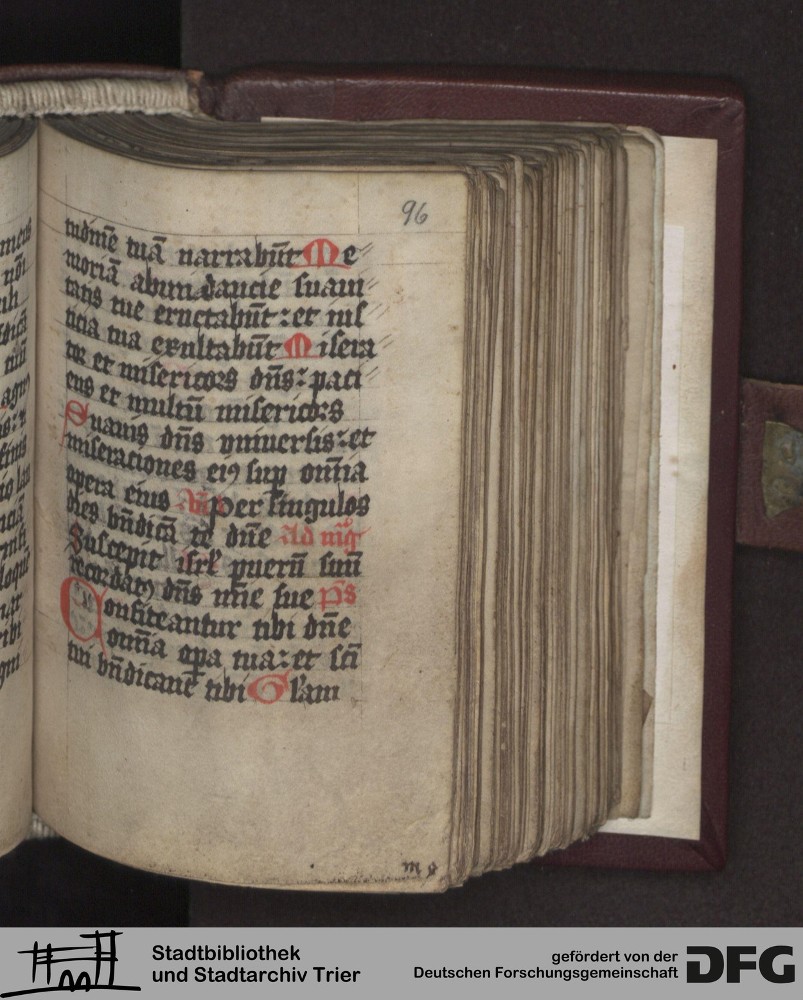 96
tudinē tuā narrabūt Me
moriā abundancie suaui
tatis tue eructabūt : et ius
ticia tua exultabūt Misera
tor et misericors dn̄s : paci
ens et multū misericors
Suauis dn̄s vniuersis : et
miseraciones eiꝰ sup om̄ia
opera eius Per singulos
dies bn̄dicā te dn̄e Ad mꝰ
Suscepit isrl̄ puerū suū
recordatꝰ dn̄s mīe sue ps
Confiteantur tibi dn̄e
om̄ia opa tua : et sc̄i
tui bn̄dicant tibi Gl'am
Stadtbibliothek
und Stadtarchiv Trier
gefördert von der
Deutschen Forschungsgemeinschaft
DFG